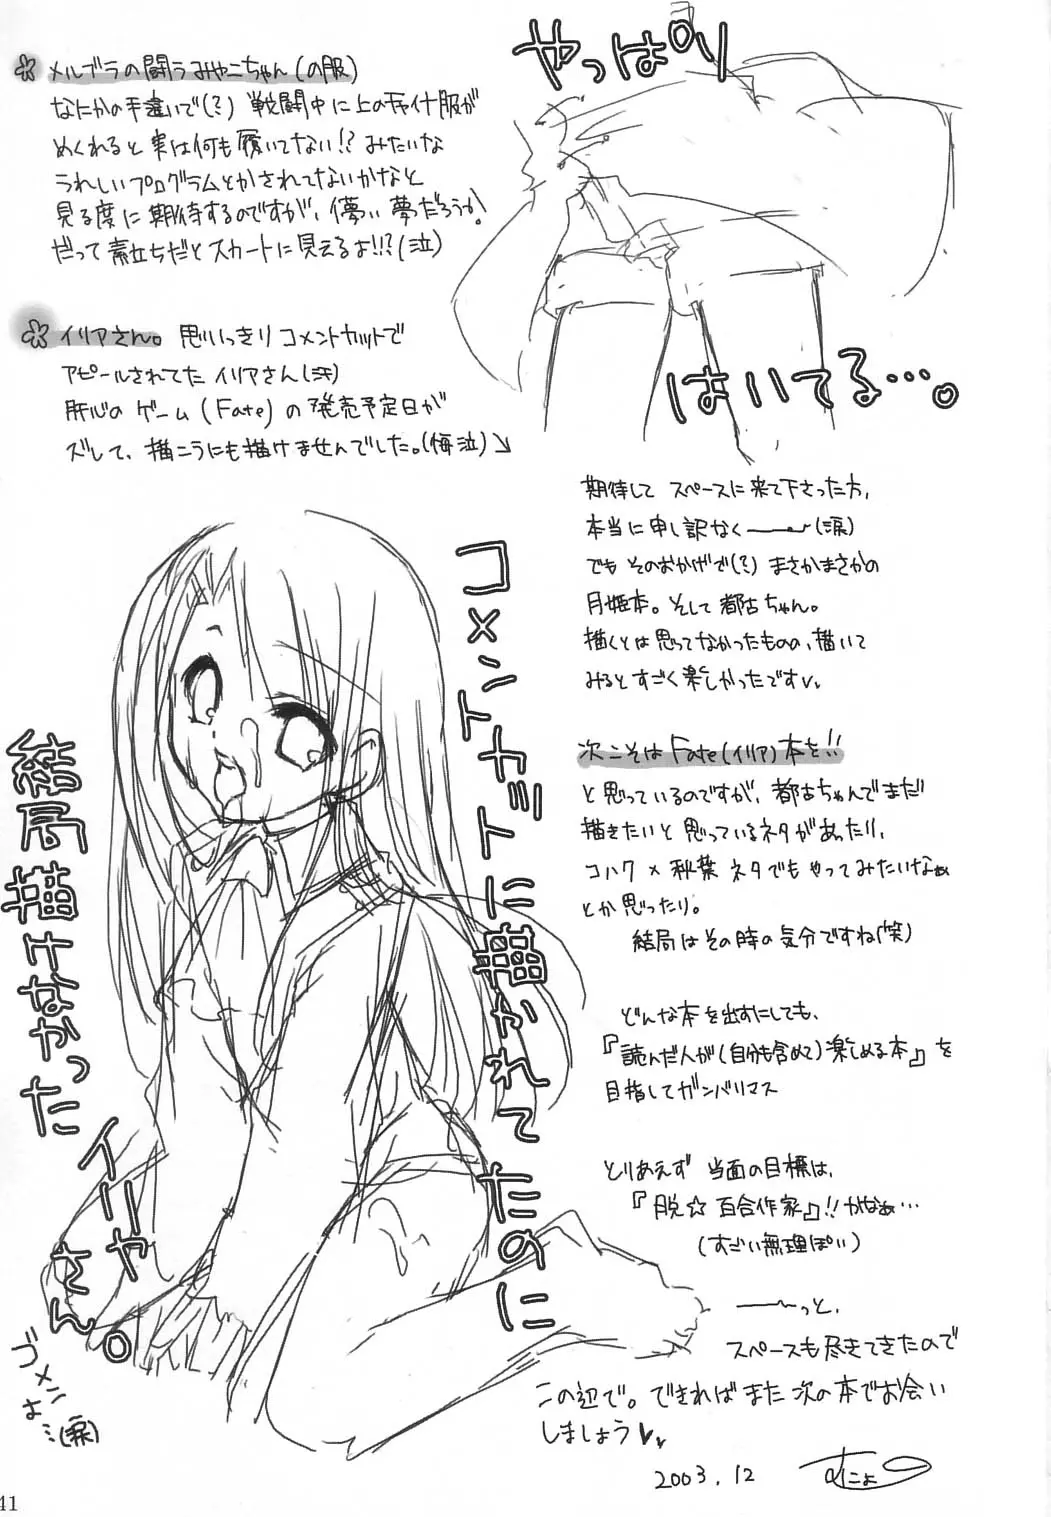 メルブラの闘うみやこちゃん(の服)
なにかの手違いで(?) 戦闘中に上のチャイナ服が
めくれると実は何も履いてない!? みたいな
うれしいプログラムとかされてないかなと
見る度に期待するのですが、儚い夢だろうか?
だって素立ちだとスカートに見えるよ!!?(泣)
やっぱり
はいてる…。
イリアさん。 思いっきりコメントカットで
アピールされてた イリアさん(汗)
肝心のゲーム(Fate)の発売予定日が
ズレて、描こうにも描けませんでした。(悔泣)
期待して スペースに来て下さった方、
本当に申し訳なく――(涙)
でも そのおかげで(?) まさかまさかの
月姫本。そして都古ちゃん。
描くとは思ってなかったものの、描いて
みるとすごく楽しかったです
次こそはFate(イリア)本を!!
と思っているのですが、都古ちゃんでまだ
描きたいと思っているネタがあったり、
コハク×秋葉 ネタでも やってみたいなぁ
とか思ったり。
結局はその時の気分ですね(笑)
どんな本を出すにしても、
『読んだ人が(自分も含めて)楽しめる本』を
目指してガンバリマス
とりあえず 当面の目標は、
『脱☆百合作家』!!かなぁ…
(すごい無理ぽい)
――っと、
スペースも尽きてきたので
この辺で。できればまた次の本でお会い
しましょう
2003.12
コメントカットに描かれてたのに
結局描けなかった
イリヤさん。
ゴメンよ…(涙)
41